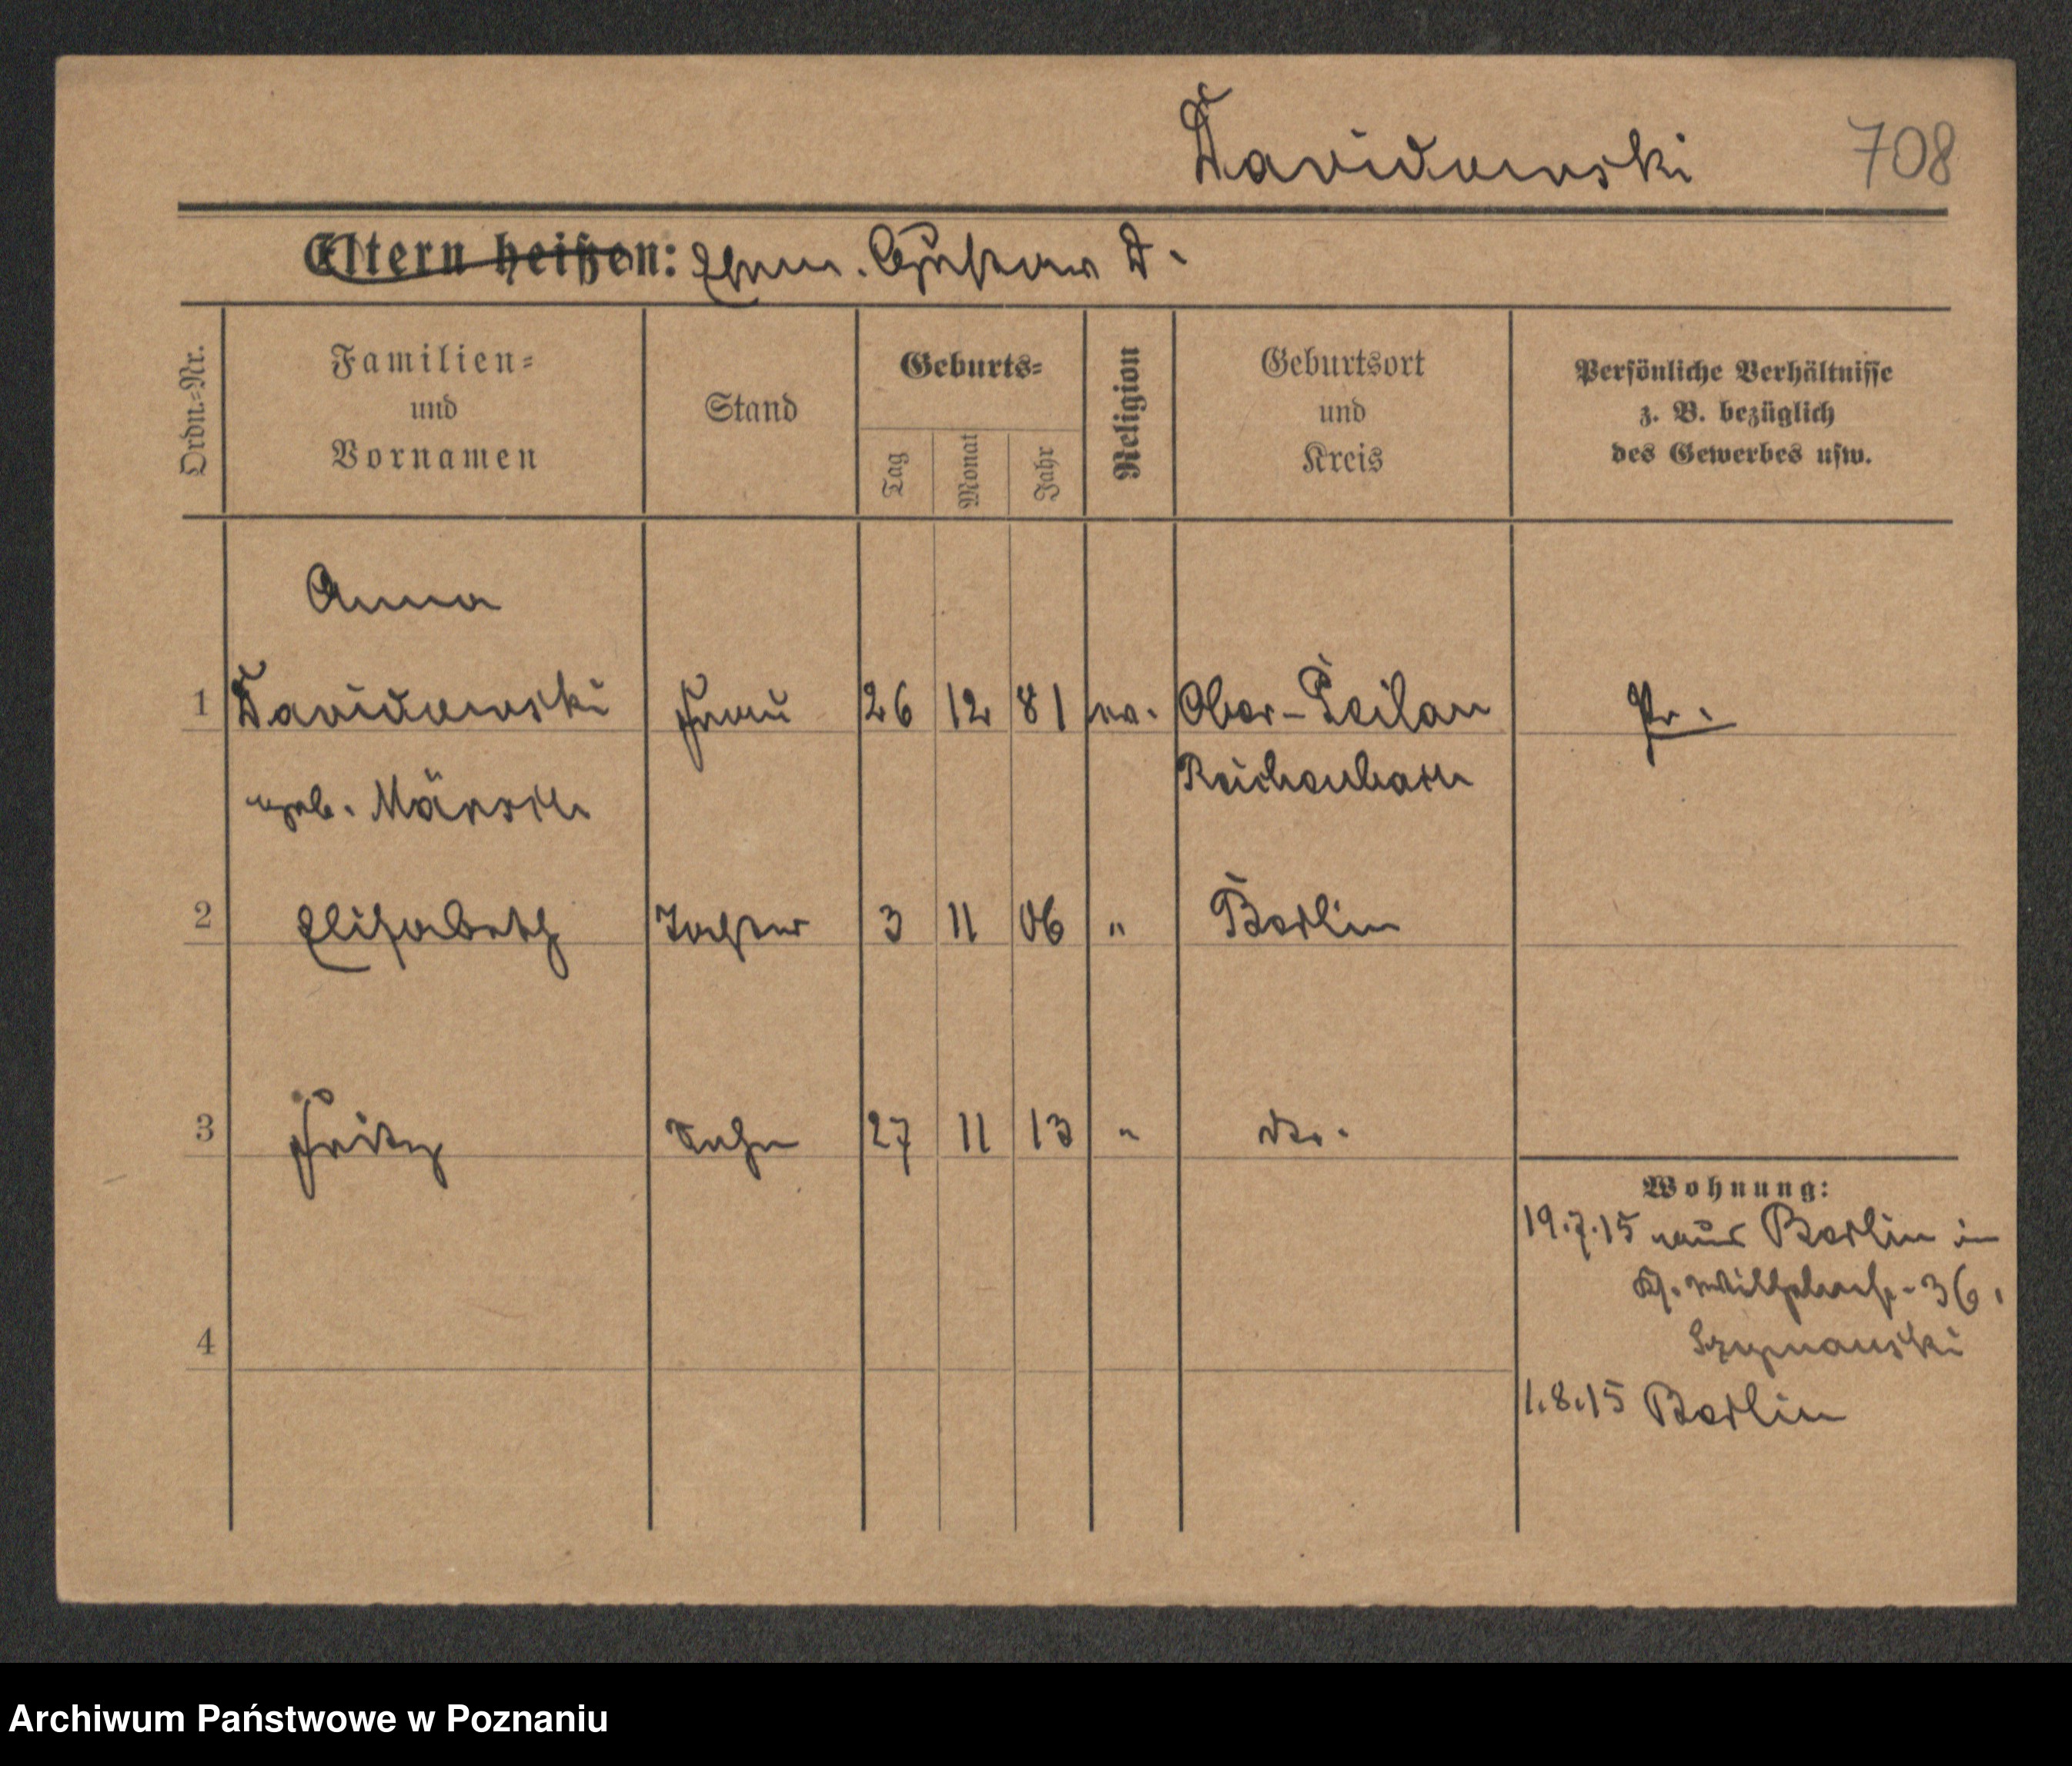 Davidowski 708
Eltern heißen: Ehem. Gustav D.
Ordn.=Nr.
Familien=
und
Vornamen
Stand
Geburts=
Tag
Monat
Jahr
Religion
Geburtsort
und
Kreis
Persönliche Verhältnisse
z. B. bezüglich
des Gewerbes usw.
Anna
1 Davidowski Frau 26 12 81 ev. Ober-Peilau Pr.
geb. Märsch Reichenbach
2 Elisabeth Tochter 3 11 06 " Berlin
3 Fritz Sohn 27 11 13 " do.
Wohnung:
19.7.15 aus Berlin in
36.
4 Szymanski
1.8.15 Berlin
Archiwum Państwowe w Poznaniu